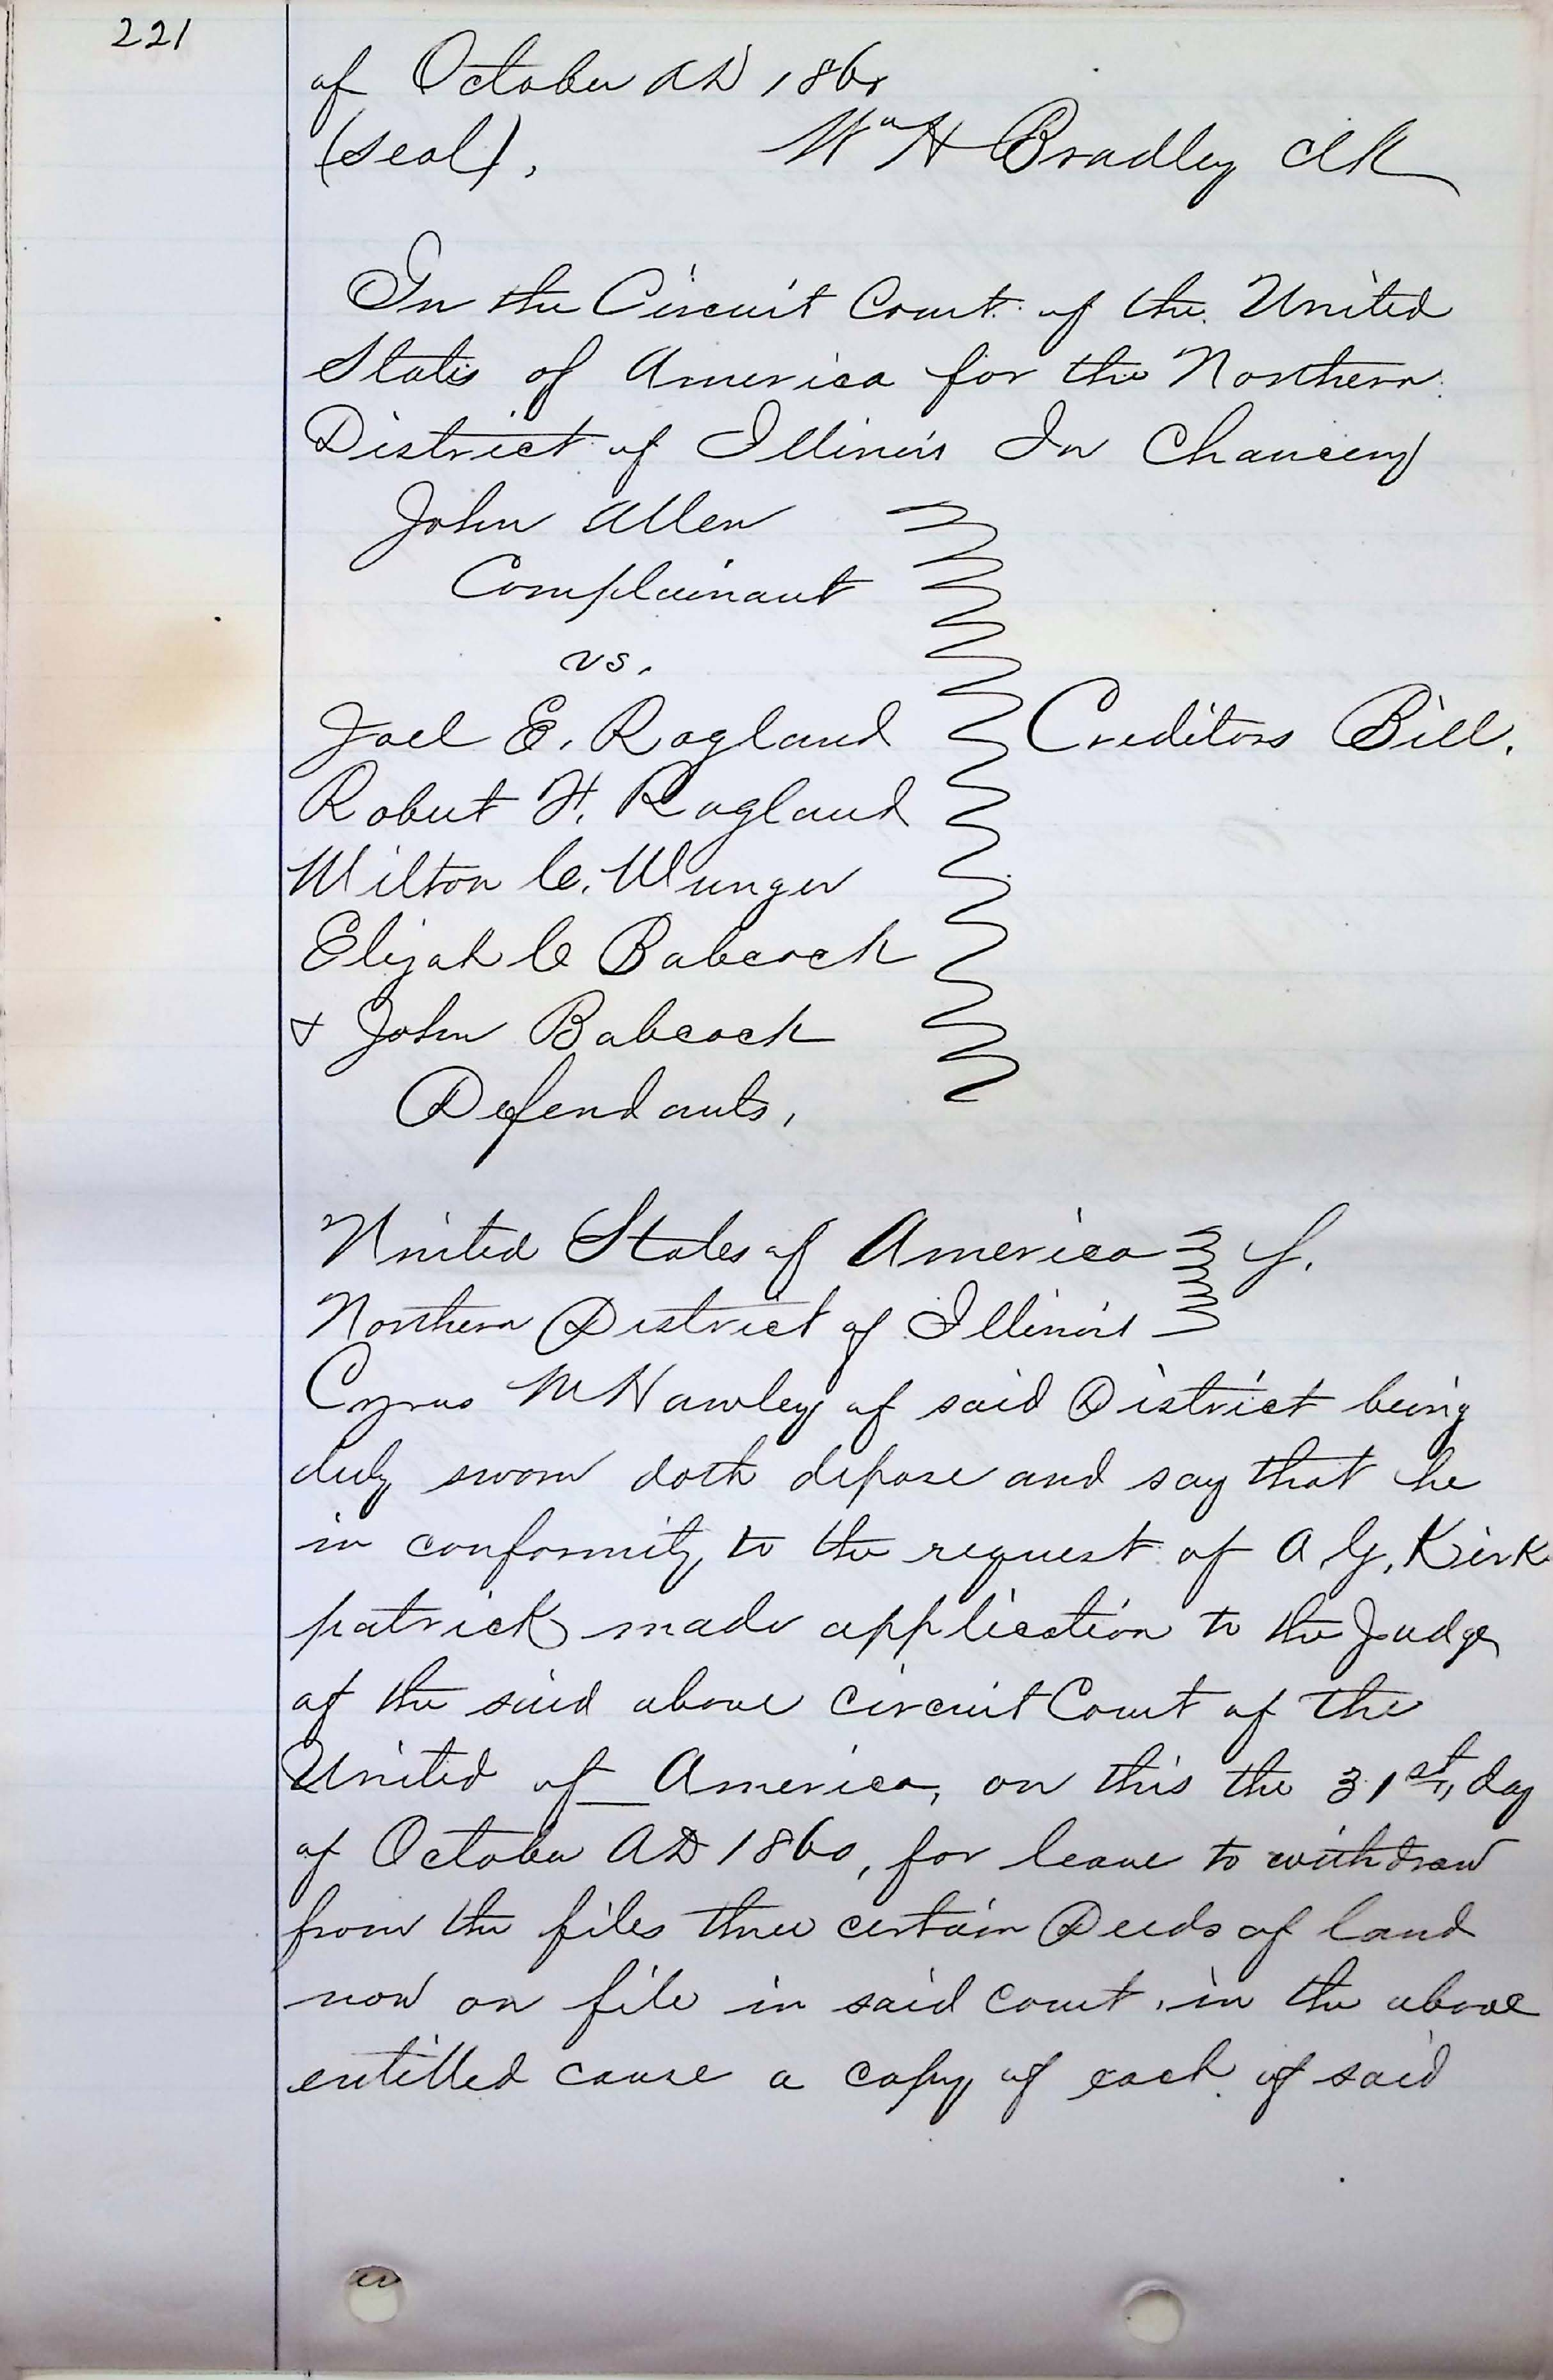 221
of October AD 1860
(seal).
Wm H Bradley Clk
In the Circuit Court of the United
States of America for the Northern
District of Illinois In Chancery
John Allen
Complainant
vs.
Joel E. Ragland
Robert H. Ragland
Creditors Bill.
Milton C. Munger
Elijah C Babcock
& John Babcock
Defendants,
United States of America
Northern District of Illinois
Cyrus M Hawley of said District being
duly sworn doth depose and say that he
in conformity to the request of A. G. Kirk
patrick made application to the Judge
of the said above circuit Court of the
United of __ America, on this the 31st, day
of October AD 1860, for leave to withdraw
from the files three certain Deeds of land
now on file in said court, in the above
entitled cause a copy of each of said